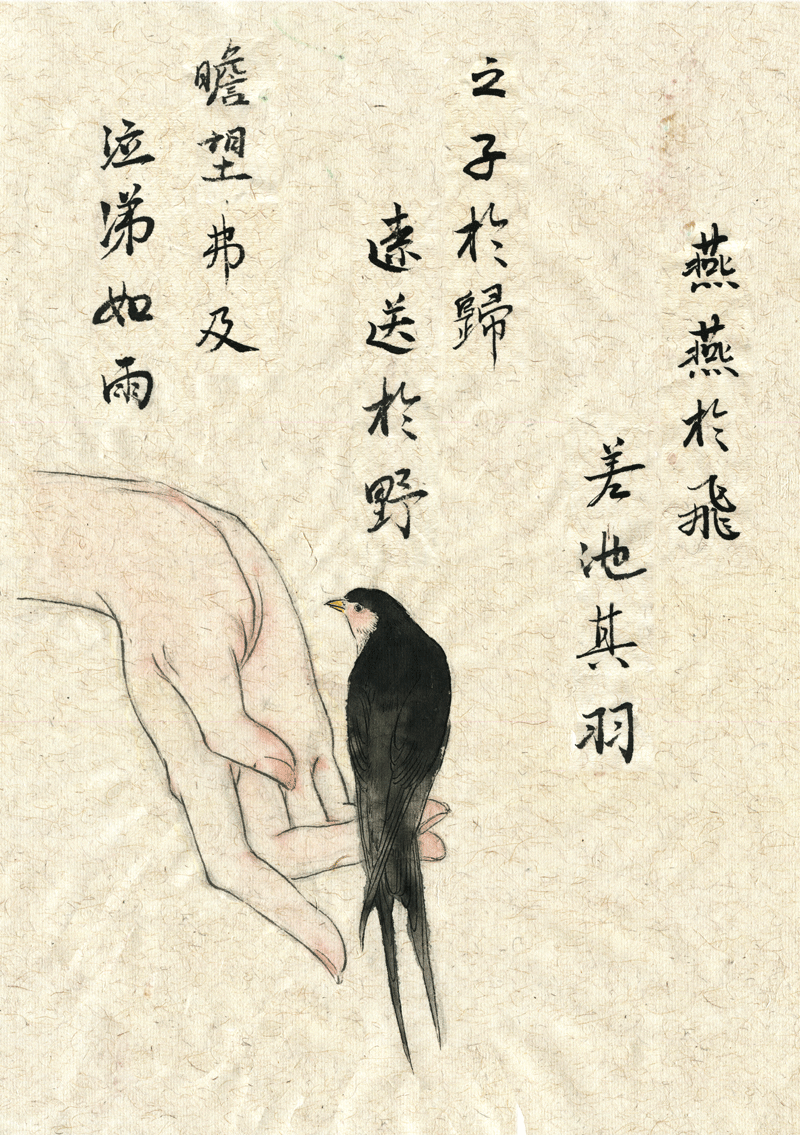 燕燕於飛
差池其羽
之子於歸
遠送於野
瞻望弗及
泣涕如雨